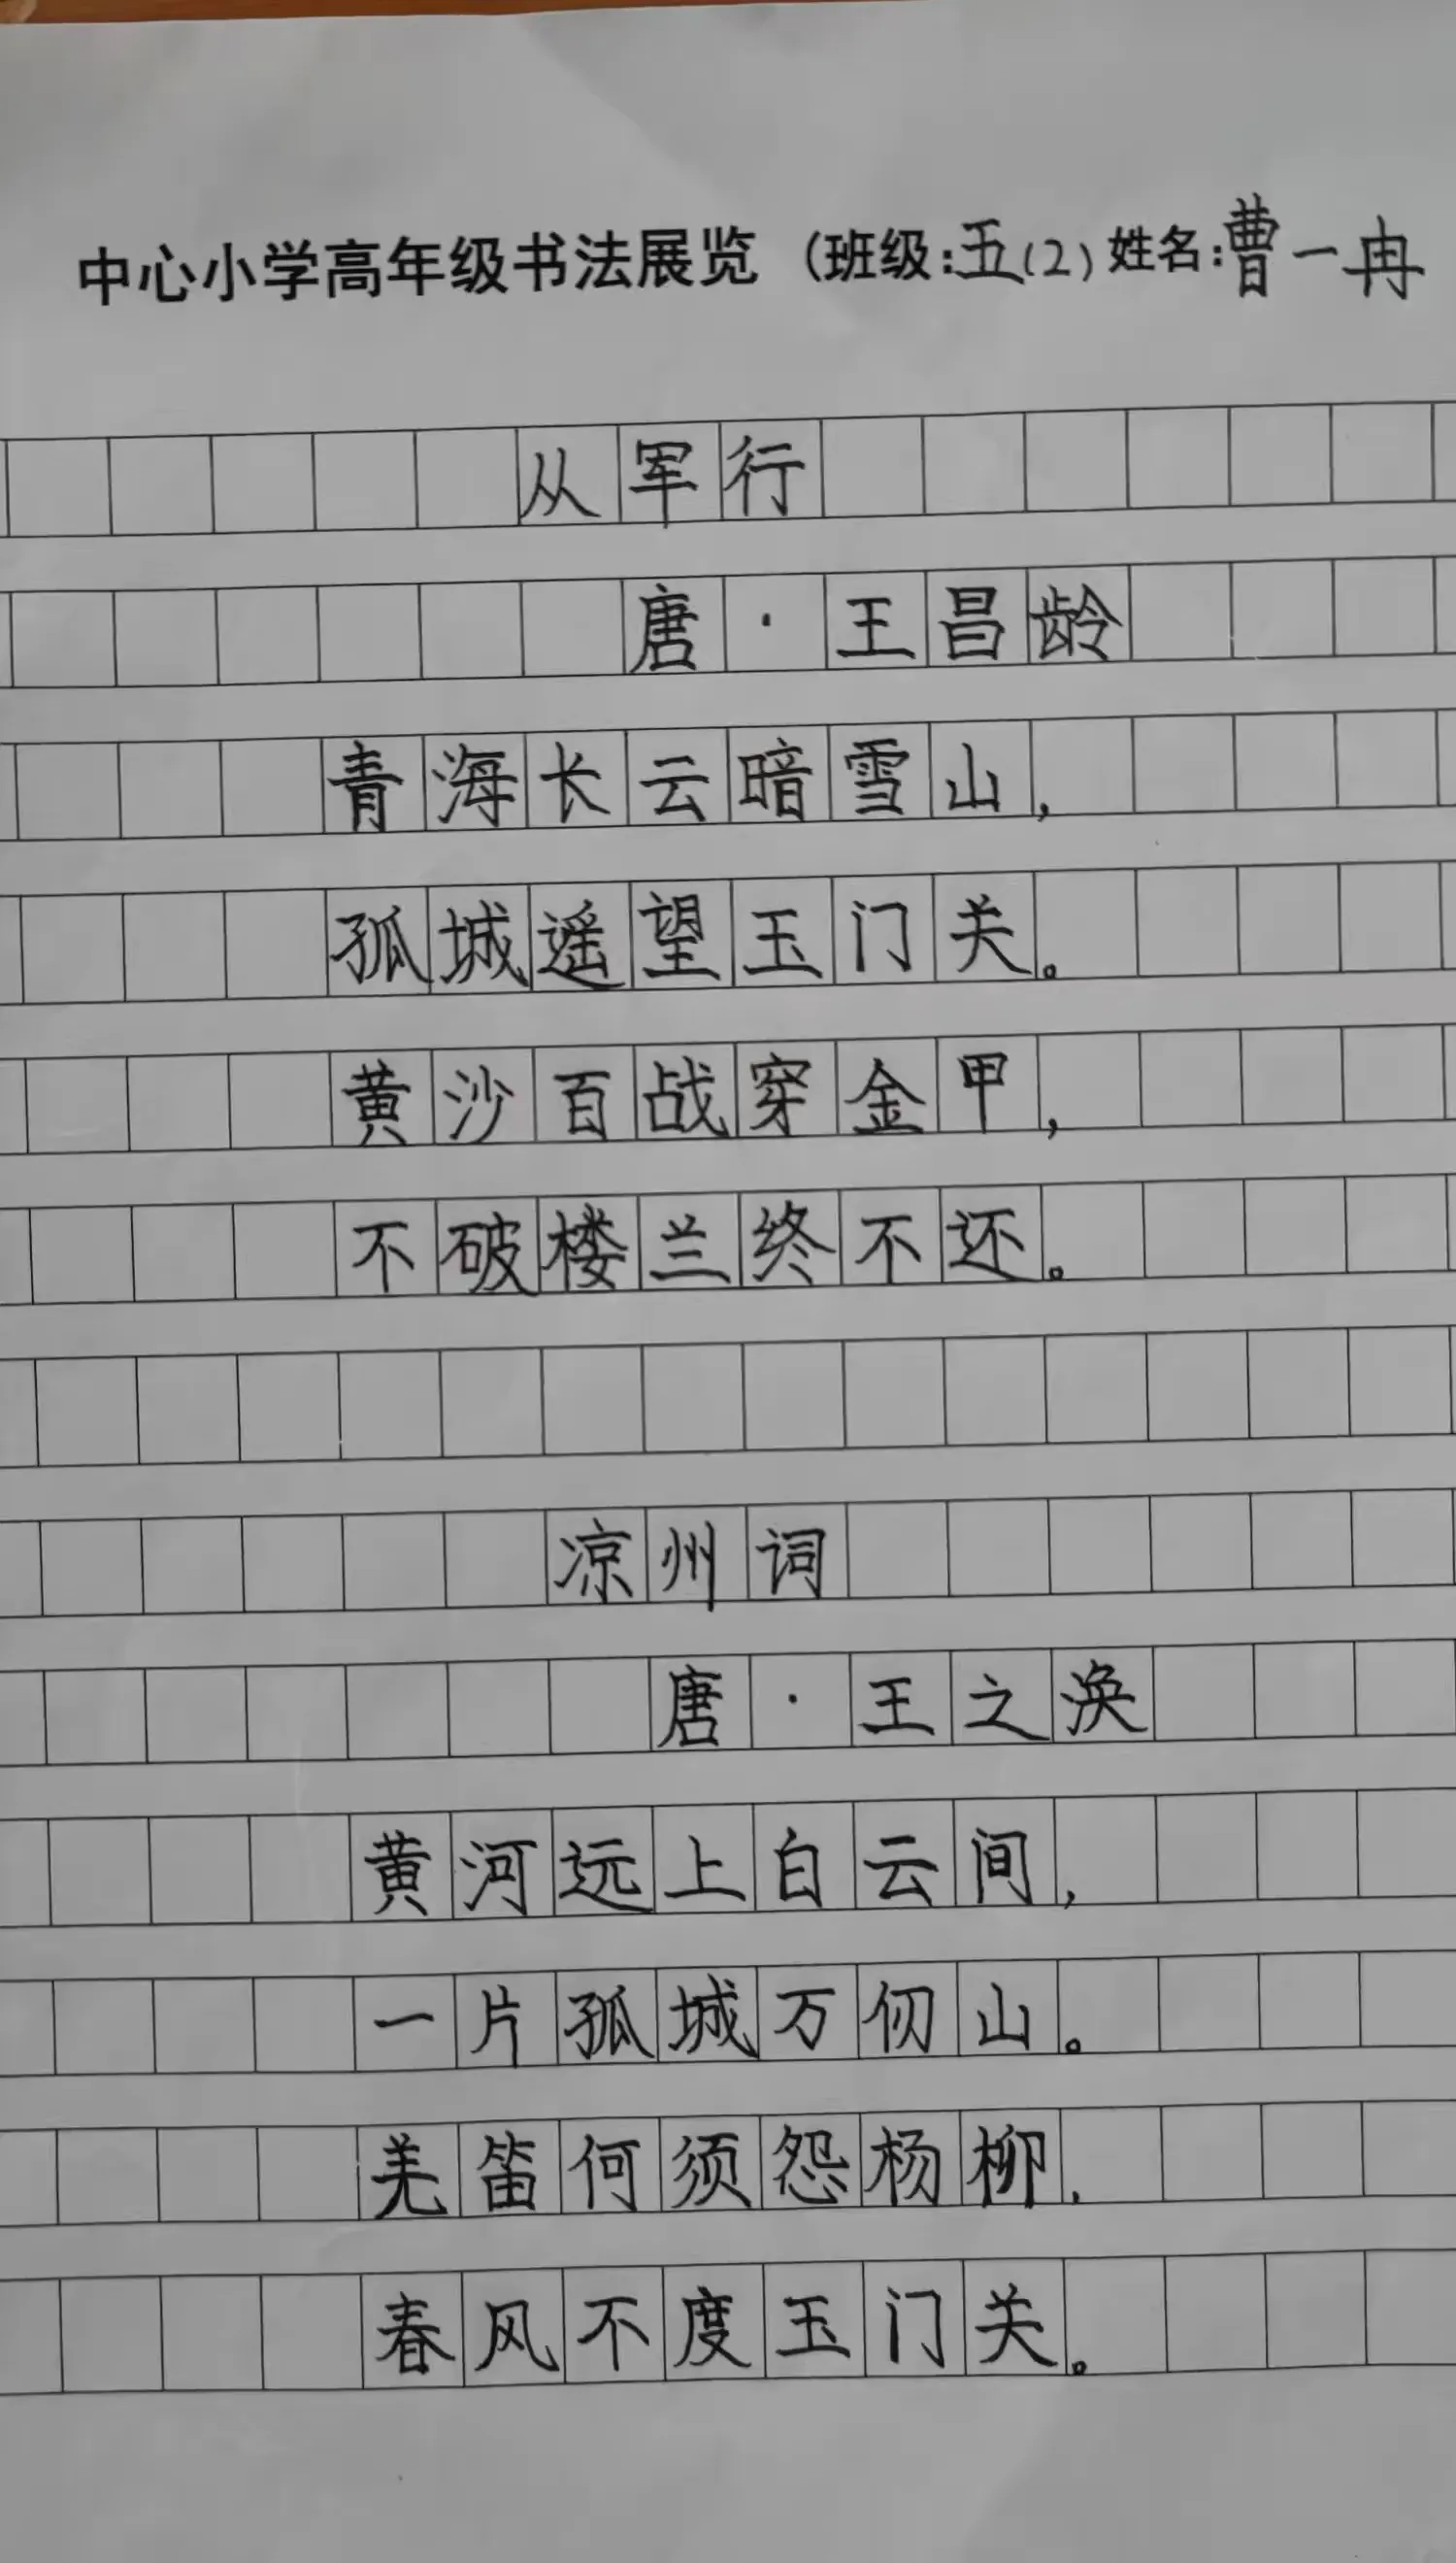 中心小学高年级书法展览（班级：五(2) 姓名：曹一冉
从军行
唐·王昌龄
青海长云暗雪山，
孤城遥望玉门关。
黄沙百战穿金甲，
不破楼兰终不还。
凉州词
唐·王之涣
黄河远上白云间，
一片孤城万仞山。
羌笛何须怨杨柳，
春风不度玉门关。